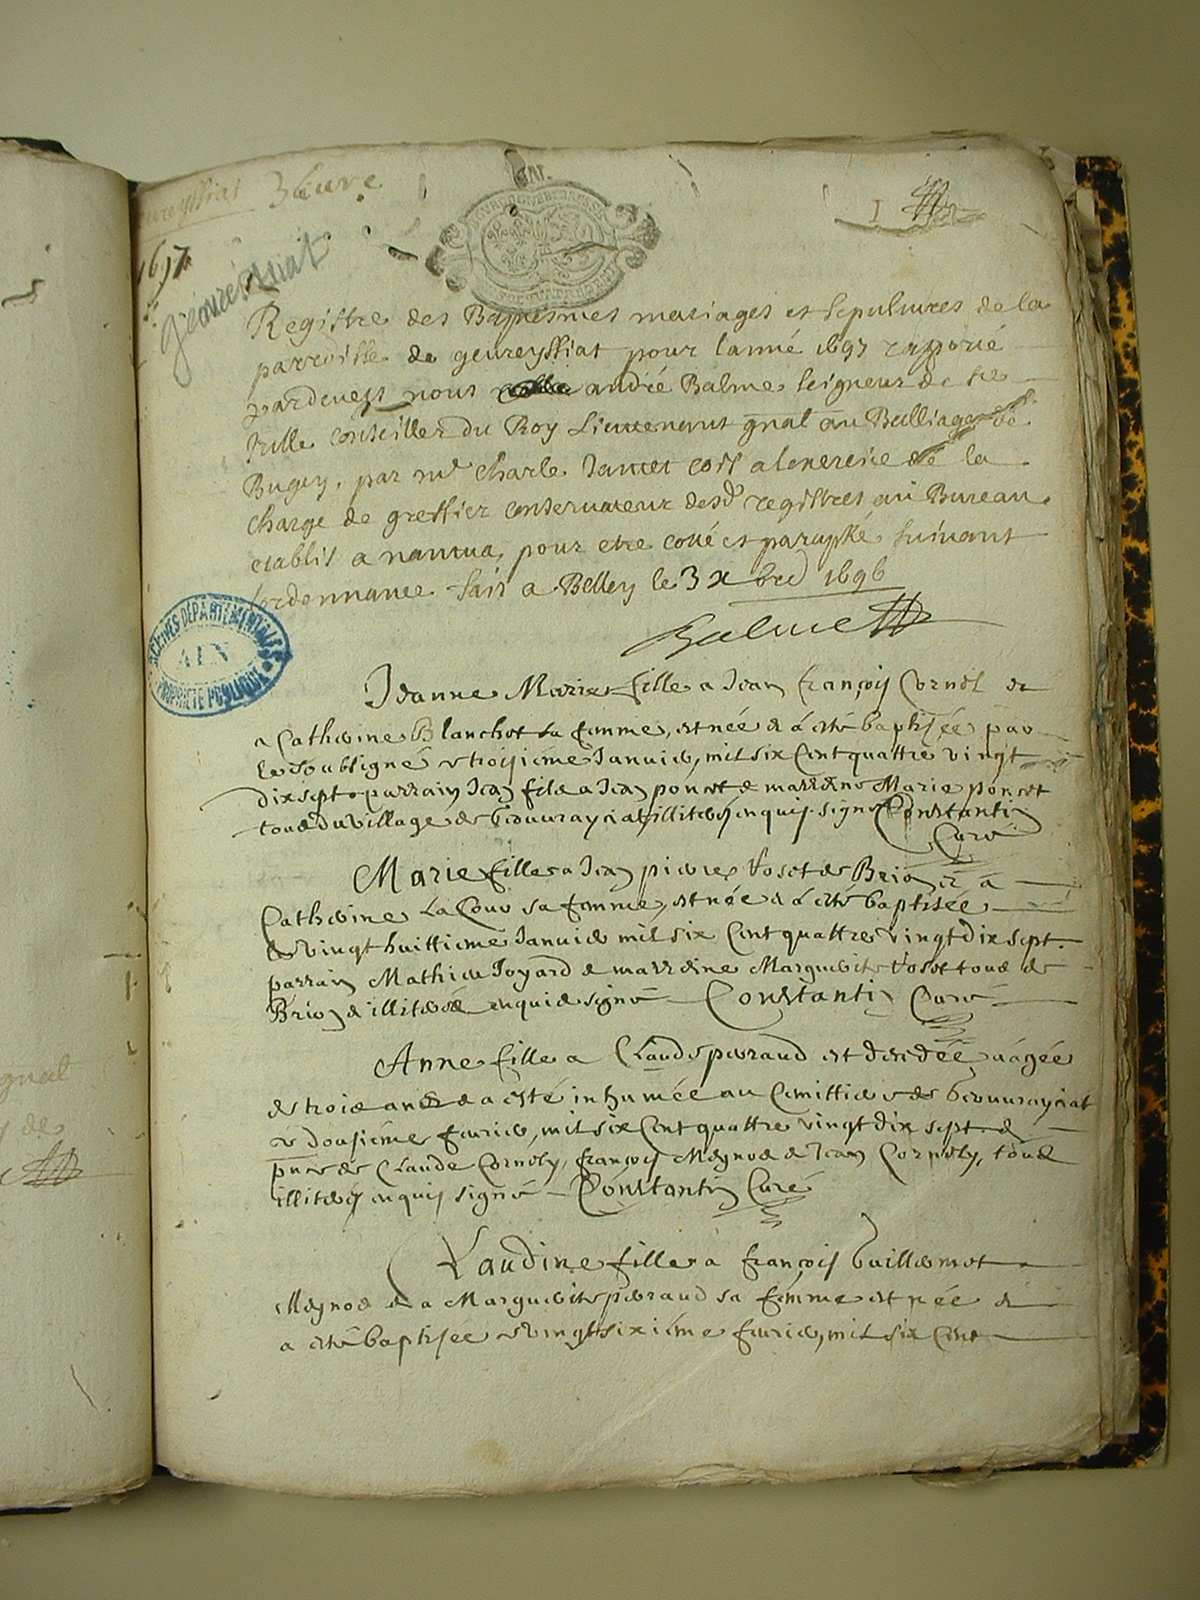 1697
Geovreissiat
I
Registre des Baptesmes mariages et sepultures de la
parroisse de geureyssiat pour lanné 1697 rapporté
pardevant nous andré Balme seigneur de Ste
Julle conseiller du Roy Lieutenant gnal au Balliage de
Bugey, par mr Charle commis a lexercice de la
charge de greffier conservateur desd registres au Bureau
etablis a nantua, pour etre cotté et paraphé suivant
lordonnance fait a Belley le 3 xbre 1696
Balme
Jeanne Marie fille a Jean françois Cornel et
a Catherine Blanchet sa femme, est née et à esté baptisée par
le soubsigné troisième Janvier, mil six Cent quattre vingt
dix sept parrain Jean fils a Jean poncet et marrene Marie poncet
tous du village de Geouvrayciat illiterés enquis signé Constantin
Curé
Marie fille a Jean pierre de Brion et à
Catherine La Cour sa femme, est née et à esté baptisée
le vingt huittieme Janvier mil six Cent quattre vingt dix sept
parrain Mathieu Joyard et marreine Marguerite tous de
Brion et illiterés enquis signé Constantin Curé
Anne fille a Claude peraud est decedée aagée
de trois ans et a esté inhumée au Cemittiere de Geouvrayciat
le dousiéme fevrier, mil six Cent quattre vingt dix sept et
pnce de Claude Cornely, françois Meynod et Jean Cornely, tous
illiterés enquis signé Constantin Curé
Claudine fille à françois Guillermet
Meynod et a Marguerite peraud sa femme est née et
a esté baptisée le vingt sixième fevrier, mil six Cent
ARCHIVES DÉPARTEMENTALES
AIN
PROPRIÉTÉ PUBLIQUE
gnal
de